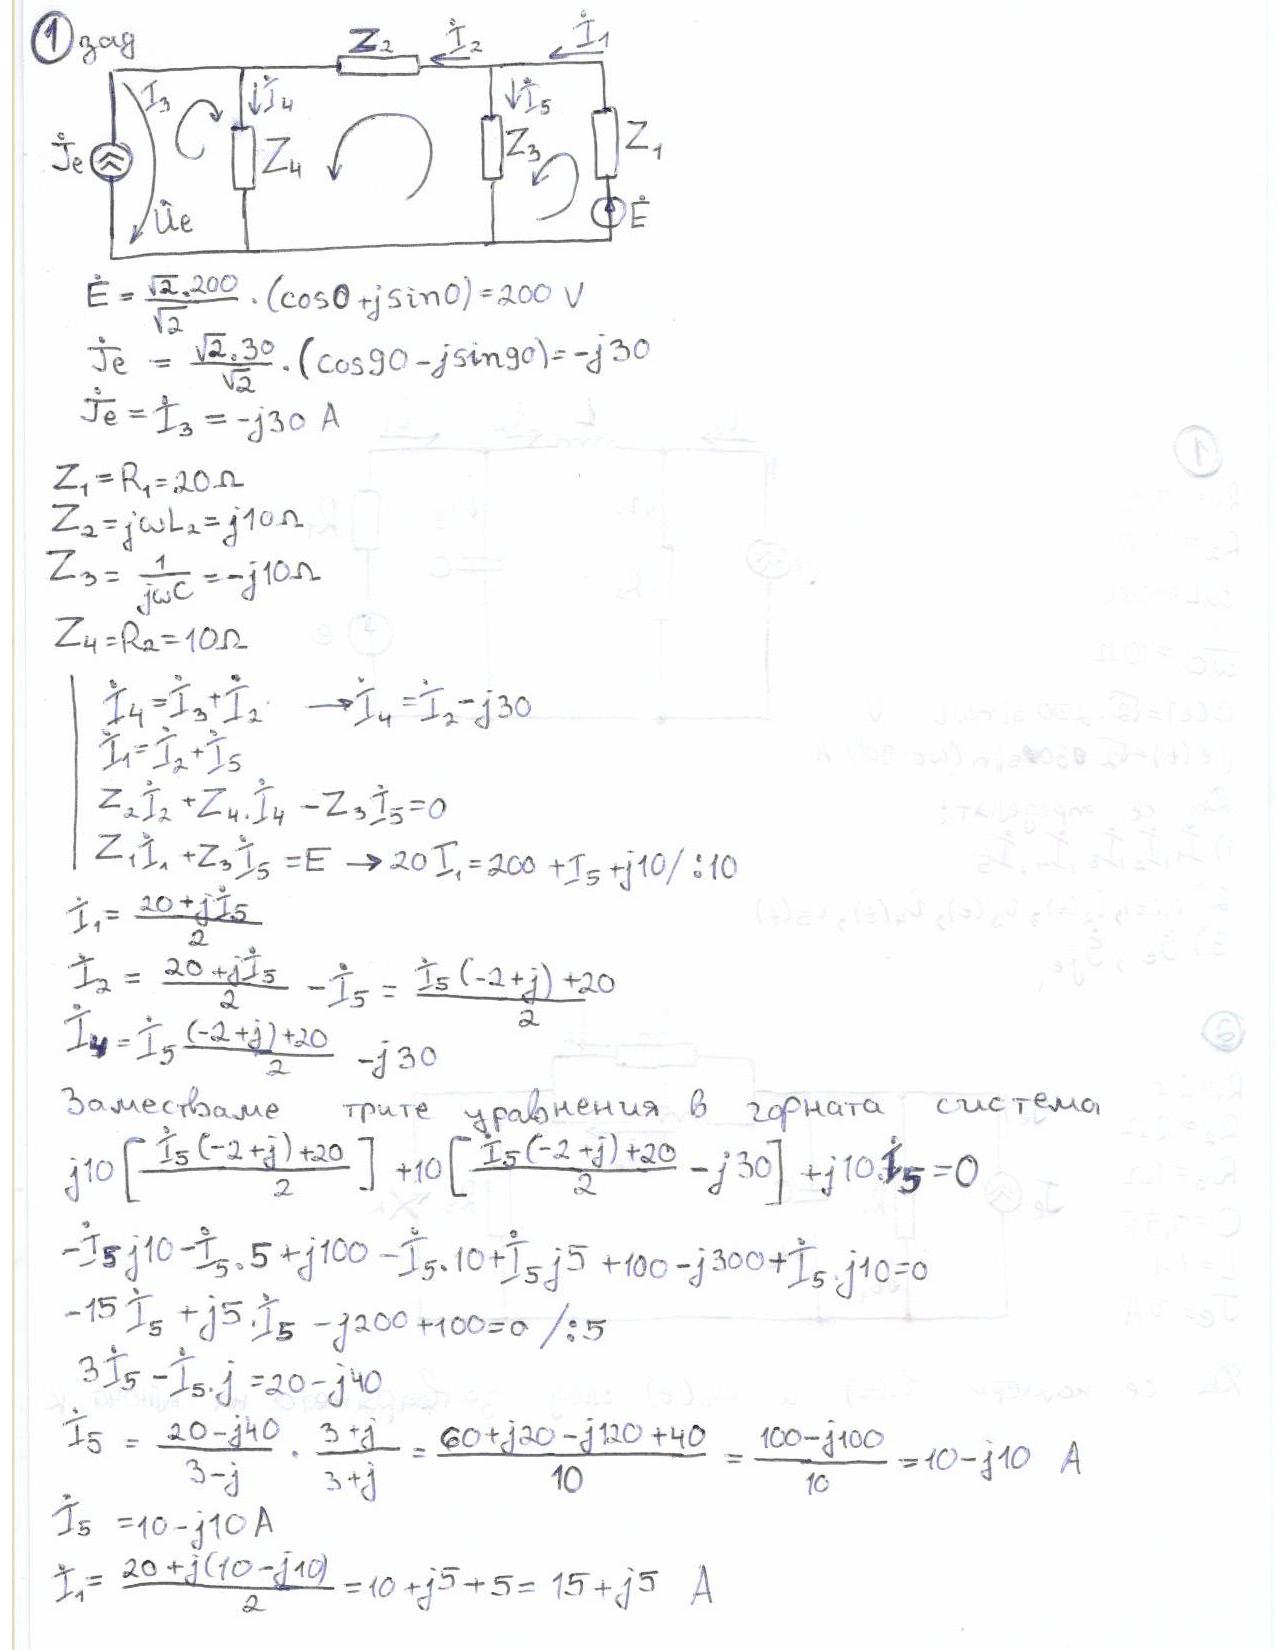 ① зад
Z₂ İ₂ İ₁
I₃ İ₄ İ₅
J̇e Z₄ Z₃ Z₁
U̇e Ė
Ė = √2.200/√2 . (cos0+jsin0) = 200 V
J̇e = √2.30/√2 . (cos90-jsin90) = -j30
J̇e = İ₃ = -j30 A
Z₁ = R₁ = 20Ω
Z₂ = jωL₂ = j10Ω
Z₃ = 1/jωC = -j10Ω
Z₄ = R₂ = 10Ω
İ₄ = İ₃ + İ₂ → İ₄ = İ₂ - j30
İ₁ = İ₂ + İ₅
Z₂İ₂ + Z₄.İ₄ - Z₃İ₅ = 0
Z₁İ₁ + Z₃İ₅ = E → 20I₁ = 200 + I₅ + j10 /:10
İ₁ = 20+jİ₅/2
İ₂ = 20+jİ₅/2 - İ₅ = İ₅(-2+j)+20/2
İ₄ = İ₅ (-2+j)+20/2 - j30
Заместваме трите уравнения в горната система
j10 [İ₅(-2+j)+20/2] + 10 [İ₅(-2+j)+20/2 - j30] + j10.İ₅ = 0
-İ₅j10 - İ₅.5 + j100 - İ₅.10 + İ₅j5 + 100 - j300 + İ₅.j10 = 0
-15İ₅ + j5.İ₅ - j200 + 100 = 0 /:5
3İ₅ - İ₅.j = 20 - j40
İ₅ = 20-j40/3-j . 3+j/3+j = 60+j20-j120+40/10 = 100-j100/10 = 10-j10 A
İ₅ = 10-j10 A
İ₁ = 20+j(10-j10)/2 = 10+j5+5 = 15+j5 A